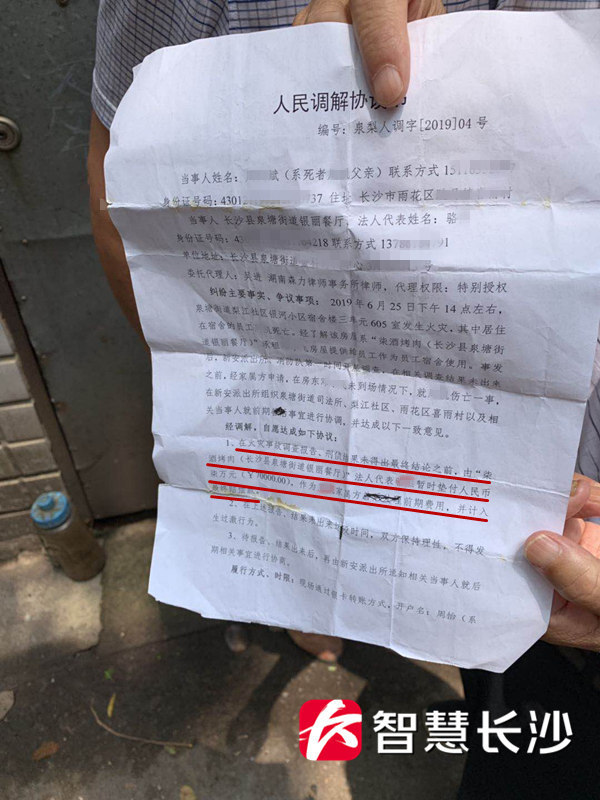 人民调解协议书
编号：泉梨人调字[2019]04 号
当事人姓名： 斌（系死者 父亲）联系方式 151
身份证号码：43012 37 住址 长沙市雨花区 村
当事人 长沙县泉塘街道银丽餐厅，法人代表姓名：骆
身份证号码：43 04218 联系方式 1378 91
单位地址：长沙县泉塘街道
委托代理人：吴进 湖南森力律师事务所律师，代理权限：特别授权
纠纷主要事实、争议事项：2019 年 6 月 25 日下午 14 点左右，
泉塘街道梨江社区银河小区宿舍楼三单元 605 室发生火灾，其中居住
在宿舍的员工 死亡。经了解该房屋系“柴酒烤肉（长沙县泉塘街
道银丽餐厅）”承租 房屋提供给员工作为员工宿舍使用。事发
后，新安派出所、消防 第一时间 在相关调查结果未出来
之前，经家属方申请，在房东 未到场情况下，就 伤亡一事，
在新安派出所组织泉塘街道司法所、梨江社区、雨花区喜雨村以及相
关当事人就前期 事宜进行协调，并达成以下一致意见。
经调解，自愿达成如下协议：
1、在火灾事故调查报告、 结果未得出最终结论之前，由“柴
酒烤肉（长沙县泉塘街道银丽餐厅）”法人代表 暂时垫付人民币
柒万元（￥70000.00），作为 家属方 前期费用，并计入
最终
2、在上述报告、结果未出来 时间，双方保持理性，不得发
生过激行为。
3、待报告、结果出来后，再由新安派出所通知相关当事人就后
期相关事宜进行协商。
履行方式、时限：现场通过银卡转账方式，开户名：周怡（系
智慧长沙